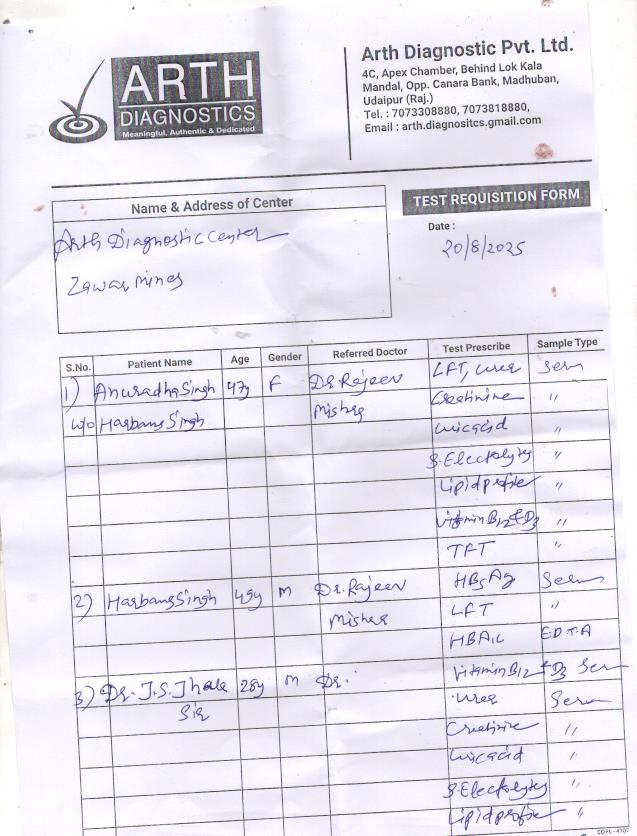 ARTH
DIAGNOSTICS
Meaningful, Authentic & Dedicated
Arth Diagnostic Pvt. Ltd.
4C, Apex Chamber, Behind Lok Kala
Mandal, Opp. Canara Bank, Madhuban,
Udaipur (Raj.)
Tel. : 7073308880, 7073818880,
Email : arth.diagnositcs.gmail.com
Name & Address of Center
TEST REQUISITION FORM
Arth Diagnostic Center
Zawar Mines
Date :
20/8/2025
S.No. Patient Name Age Gender Referred Doctor Test Prescribe Sample Type
1) Anuradha Singh 47y F Dr Rajeev LFT, Urea Serum
W/o Harbans Singh Mishra Creatinine "
Uric acid "
S. Electolytes "
Lipid profile "
Vitamin B12 & D3 "
TFT "
2) Harbans Singh 49y M Dr. Rajeev HBsAg Serum
Mishra LFT "
HBA1c EDTA
Vitamin B12 & D3 Serum
3) Dr. J.S. 28y M Dr. Urea Serum
Sir
Creatinine "
Uric acid "
S. Electolytes "
Lipid profile "
COPL - 4707